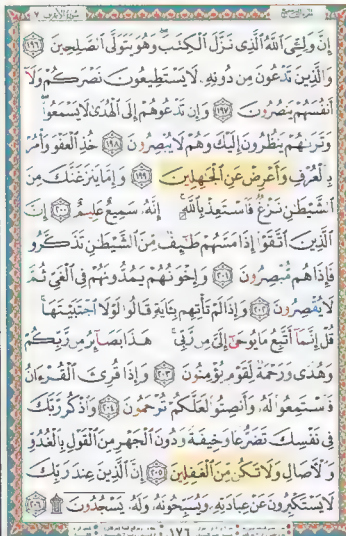 سُورَةُ الأَعْرَافِ ٧
إِنَّ وَلِـِّۧيَ ٱللَّهُ ٱلَّذِى نَزَّلَ ٱلْكِتَـٰبَ ۖ وَهُوَ يَتَوَلَّى ٱلصَّـٰلِحِينَ ﴿١٩٦﴾
وَٱلَّذِينَ تَدْعُونَ مِن دُونِهِۦ لَا يَسْتَطِيعُونَ نَصْرَكُمْ وَلَآ
أَنفُسَهُمْ يَنصُرُونَ ﴿١٩٧﴾ وَإِن تَدْعُوهُمْ إِلَى ٱلْهُدَىٰ لَا يَسْمَعُوا۟ ۖ
وَتَرَىٰهُمْ يَنظُرُونَ إِلَيْكَ وَهُمْ لَا يُبْصِرُونَ ﴿١٩٨﴾ خُذِ ٱلْعَفْوَ وَأْمُرْ
بِٱلْعُرْفِ وَأَعْرِضْ عَنِ ٱلْجَـٰهِلِينَ ﴿١٩٩﴾ وَإِمَّا يَنزَغَنَّكَ مِنَ
ٱلشَّيْطَـٰنِ نَزْغٌ فَٱسْتَعِذْ بِٱللَّهِ ۚ إِنَّهُۥ سَمِيعٌ عَلِيمٌ ﴿٢٠٠﴾ إِنَّ
ٱلَّذِينَ ٱتَّقَوْا۟ إِذَا مَسَّهُمْ طَـٰٓئِفٌ مِّنَ ٱلشَّيْطَـٰنِ تَذَكَّرُوا۟
فَإِذَا هُم مُّبْصِرُونَ ﴿٢٠١﴾ وَإِخْوَٰنُهُمْ يَمُدُّونَهُمْ فِى ٱلْغَىِّ ثُمَّ
لَا يُقْصِرُونَ ﴿٢٠٢﴾ وَإِذَا لَمْ تَأْتِهِم بِـَٔايَةٍ قَالُوا۟ لَوْلَا ٱجْتَبَيْتَهَا ۚ
قُلْ إِنَّمَآ أَتَّبِعُ مَا يُوحَىٰٓ إِلَىَّ مِن رَّبِّى ۚ هَـٰذَا بَصَآئِرُ مِن رَّبِّكُمْ
وَهُدًى وَرَحْمَةٌ لِّقَوْمٍ يُؤْمِنُونَ ﴿٢٠٣﴾ وَإِذَا قُرِئَ ٱلْقُرْءَانُ
فَٱسْتَمِعُوا۟ لَهُۥ وَأَنصِتُوا۟ لَعَلَّكُمْ تُرْحَمُونَ ﴿٢٠٤﴾ وَٱذْكُر رَّبَّكَ
فِى نَفْسِكَ تَضَرُّعًا وَخِيفَةً وَدُونَ ٱلْجَهْرِ مِنَ ٱلْقَوْلِ بِٱلْغُدُوِّ
وَٱلْـَٔاصَالِ وَلَا تَكُن مِّنَ ٱلْغَـٰفِلِينَ ﴿٢٠٥﴾ إِنَّ ٱلَّذِينَ عِندَ رَبِّكَ
لَا يَسْتَكْبِرُونَ عَنْ عِبَادَتِهِۦ وَيُسَبِّحُونَهُۥ وَلَهُۥ يَسْجُدُونَ ۩ ﴿٢٠٦﴾
١٧٦